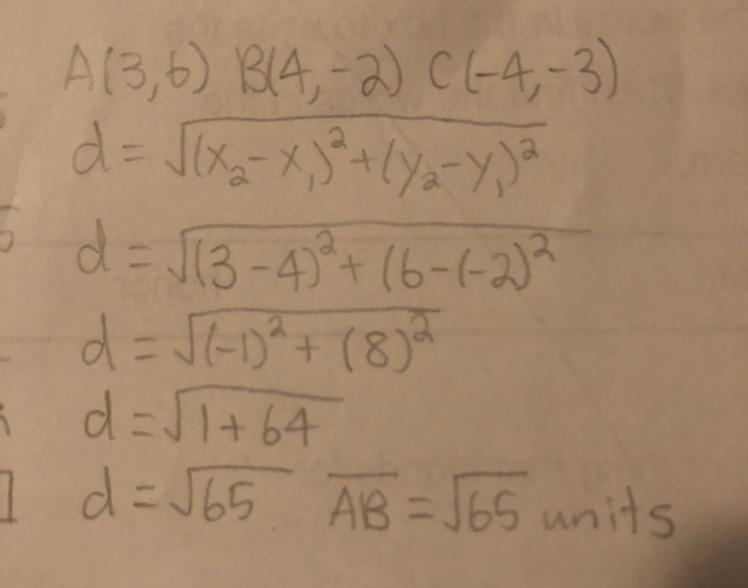 A(3,6) B(4,-2) C(-4,-3)
d = √(x₂-x₁)²+(y₂-y₁)²
d = √(3-4)²+(6-(-2)²
d = √(-1)²+(8)²
d = √1+64
d = √65 A̅B̅ = √65 units